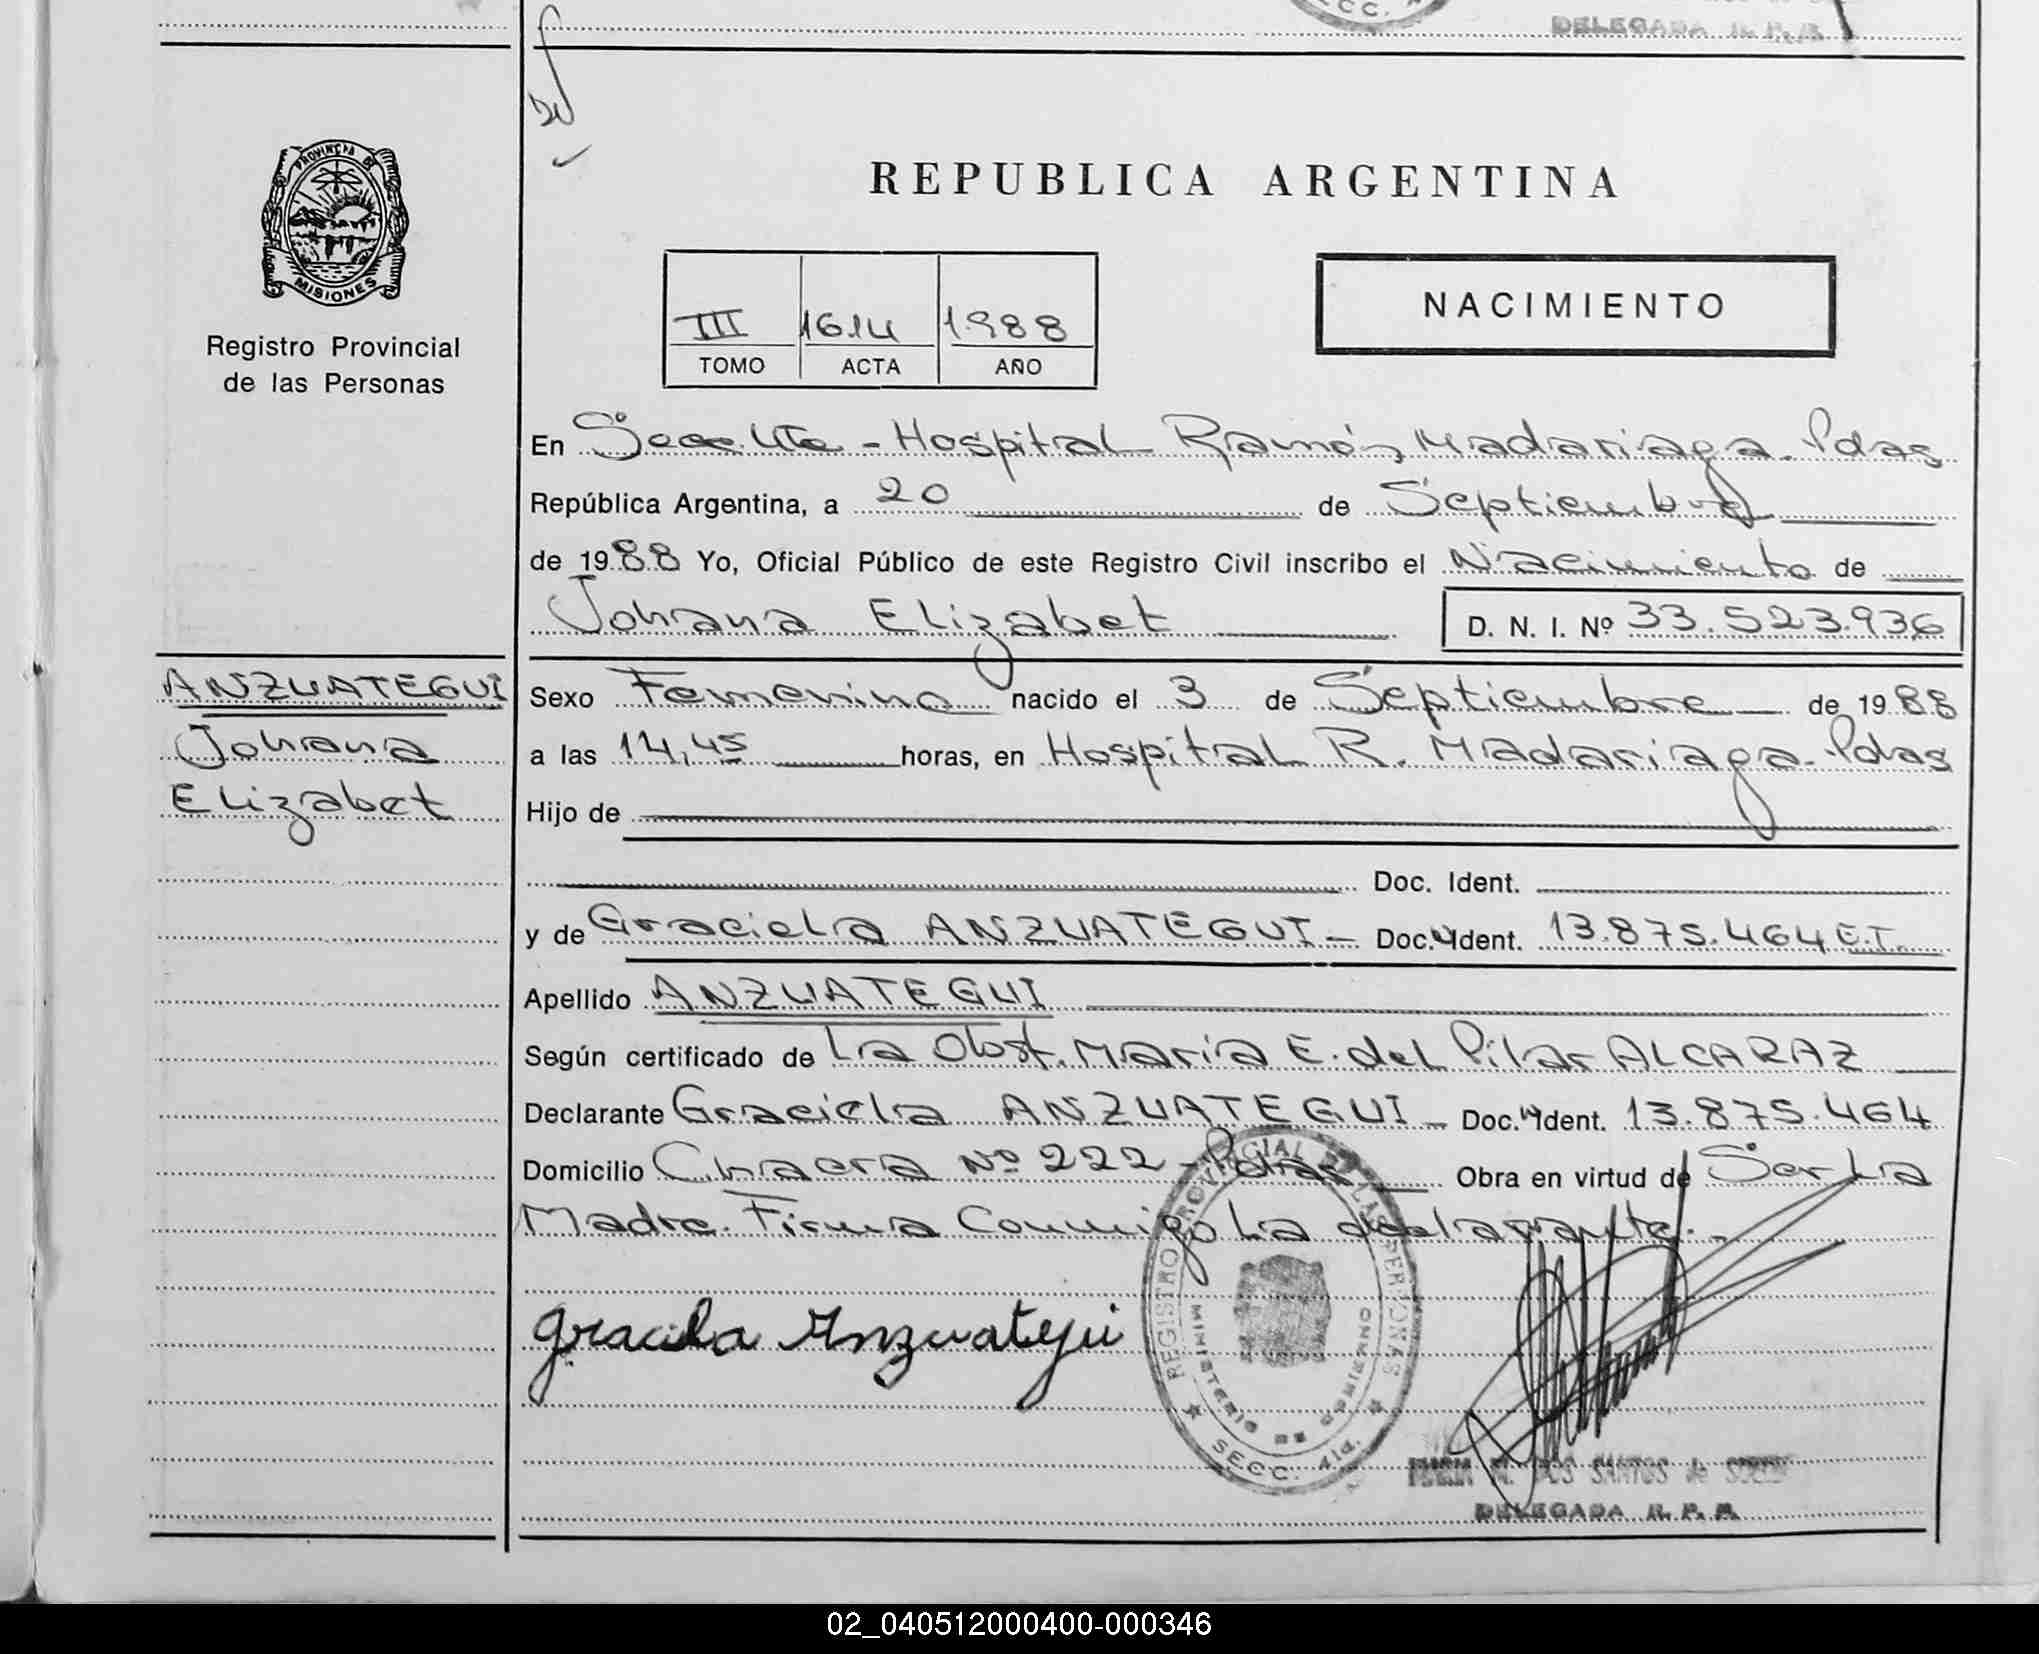 SECC.
DELEGADA R. P. P.
PROVINCIA DE
MISIONES
Registro Provincial
de las Personas
REPUBLICA ARGENTINA
III 1614 1988
TOMO ACTA AÑO
NACIMIENTO
En Secc. 4ta - Hospital Ramón Madariaga. Pdas
República Argentina, a 20 de Septiembre
de 1988 Yo, Oficial Público de este Registro Civil inscribo el Nacimiento de
Johana Elizabet D. N. I. Nº 33.523.936
ANZUATEGUI
Johana
Elizabet
Sexo Femenino nacido el 3 de Septiembre de 1988
a las 14,45 horas, en Hospital R. Madariaga. Pdas
Hijo de
Doc. Ident.
y de Graciela ANZUATEGUI - Doc. Ident. 13.875.464 E.T.
Apellido ANZUATEGUI
Según certificado de La Obst. María E. del Pilar ALCARAZ
Declarante Graciela ANZUATEGUI - Doc. Ident. 13.875.464
Domicilio Chacra Nº 222 - Pdas Obra en virtud de Ser La
Madre. Firma Conmigo La declarante. -
Graciela Anzuategui
REGISTRO PROVINCIAL DE LAS PERSONAS
MINISTERIO DE GOBIERNO
SECC. 4ta.
MARIA M. DOS SANTOS de
DELEGADA R. P. P.
02_040512000400-000346